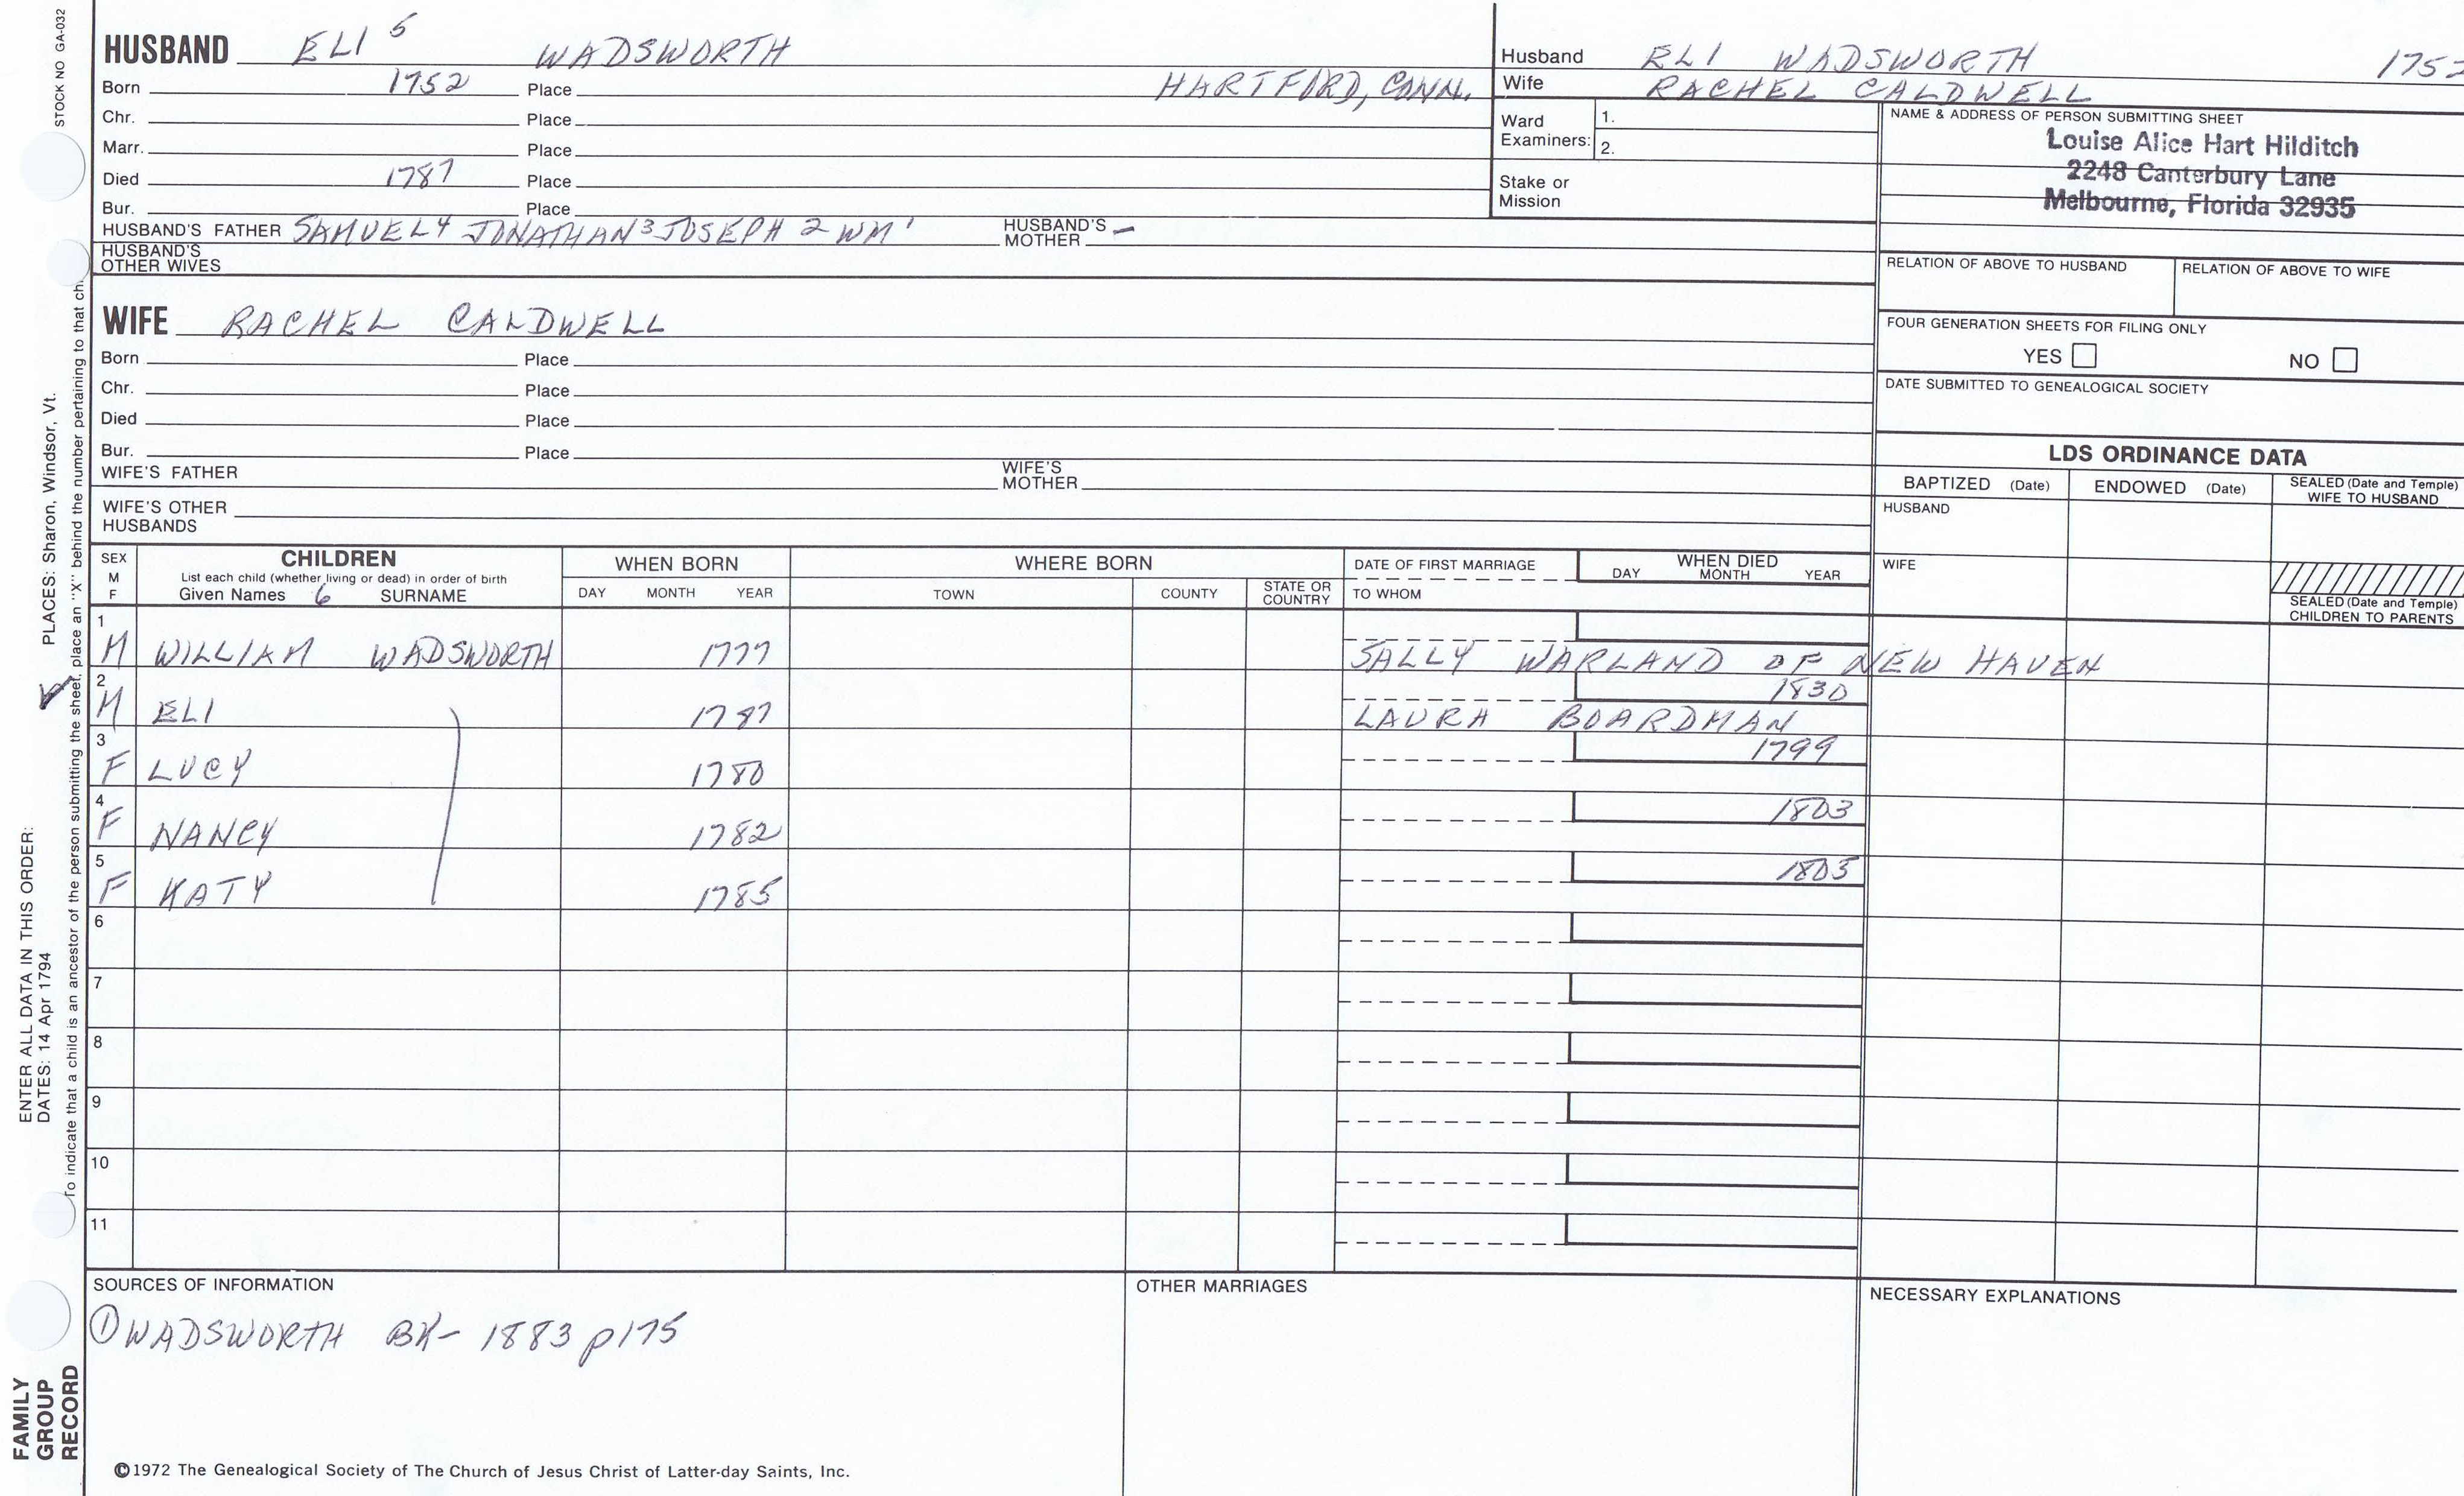 STOCK NO GA-032
HUSBAND ELI 5 WADSWORTH
Born 1752 Place HARTFORD, CONN.
Chr. Place
Marr. Place
Died 1787 Place
Bur. Place
HUSBAND'S FATHER SAMUEL 4 JONATHAN 3 JOSEPH 2 WM 1 HUSBAND'S MOTHER –
HUSBAND'S OTHER WIVES
WIFE RACHEL CALDWELL
Born Place
Chr. Place
Died Place
Bur. Place
WIFE'S FATHER WIFE'S MOTHER
WIFE'S OTHER HUSBANDS
Husband ELI WADSWORTH 1752
Wife RACHEL CALDWELL
Ward Examiners: 1.
2.
Stake or Mission
NAME & ADDRESS OF PERSON SUBMITTING SHEET
Louise Alice Hart Hilditch
2248 Canterbury Lane
Melbourne, Florida 32935
RELATION OF ABOVE TO HUSBAND RELATION OF ABOVE TO WIFE
FOUR GENERATION SHEETS FOR FILING ONLY
YES NO
DATE SUBMITTED TO GENEALOGICAL SOCIETY
LDS ORDINANCE DATA
BAPTIZED (Date) ENDOWED (Date) SEALED (Date and Temple) WIFE TO HUSBAND
HUSBAND
WIFE
SEALED (Date and Temple) CHILDREN TO PARENTS
SEX M F
CHILDREN
List each child (whether living or dead) in order of birth
Given Names 6 SURNAME
WHEN BORN
DAY MONTH YEAR
WHERE BORN
TOWN COUNTY STATE OR COUNTRY
DATE OF FIRST MARRIAGE
TO WHOM
WHEN DIED
DAY MONTH YEAR
1 M WILLIAM WADSWORTH 1777 SALLY WARLAND OF NEW HAVEN
2 M ELI 1787 LAURA BOARDMAN 1830
3 F LUCY 1780 1799
4 F NANCY 1782 1803
5 F KATY 1785 1803
6
7
8
9
10
11
SOURCES OF INFORMATION
① WADSWORTH BK- 1883 p175
OTHER MARRIAGES
NECESSARY EXPLANATIONS
©1972 The Genealogical Society of The Church of Jesus Christ of Latter-day Saints, Inc.
FAMILY GROUP RECORD
ENTER ALL DATA IN THIS ORDER:
DATES: 14 Apr 1794 PLACES: Sharon, Windsor, Vt.
To indicate that a child is an ancestor of the person submitting the sheet, place an "X" behind the number pertaining to that